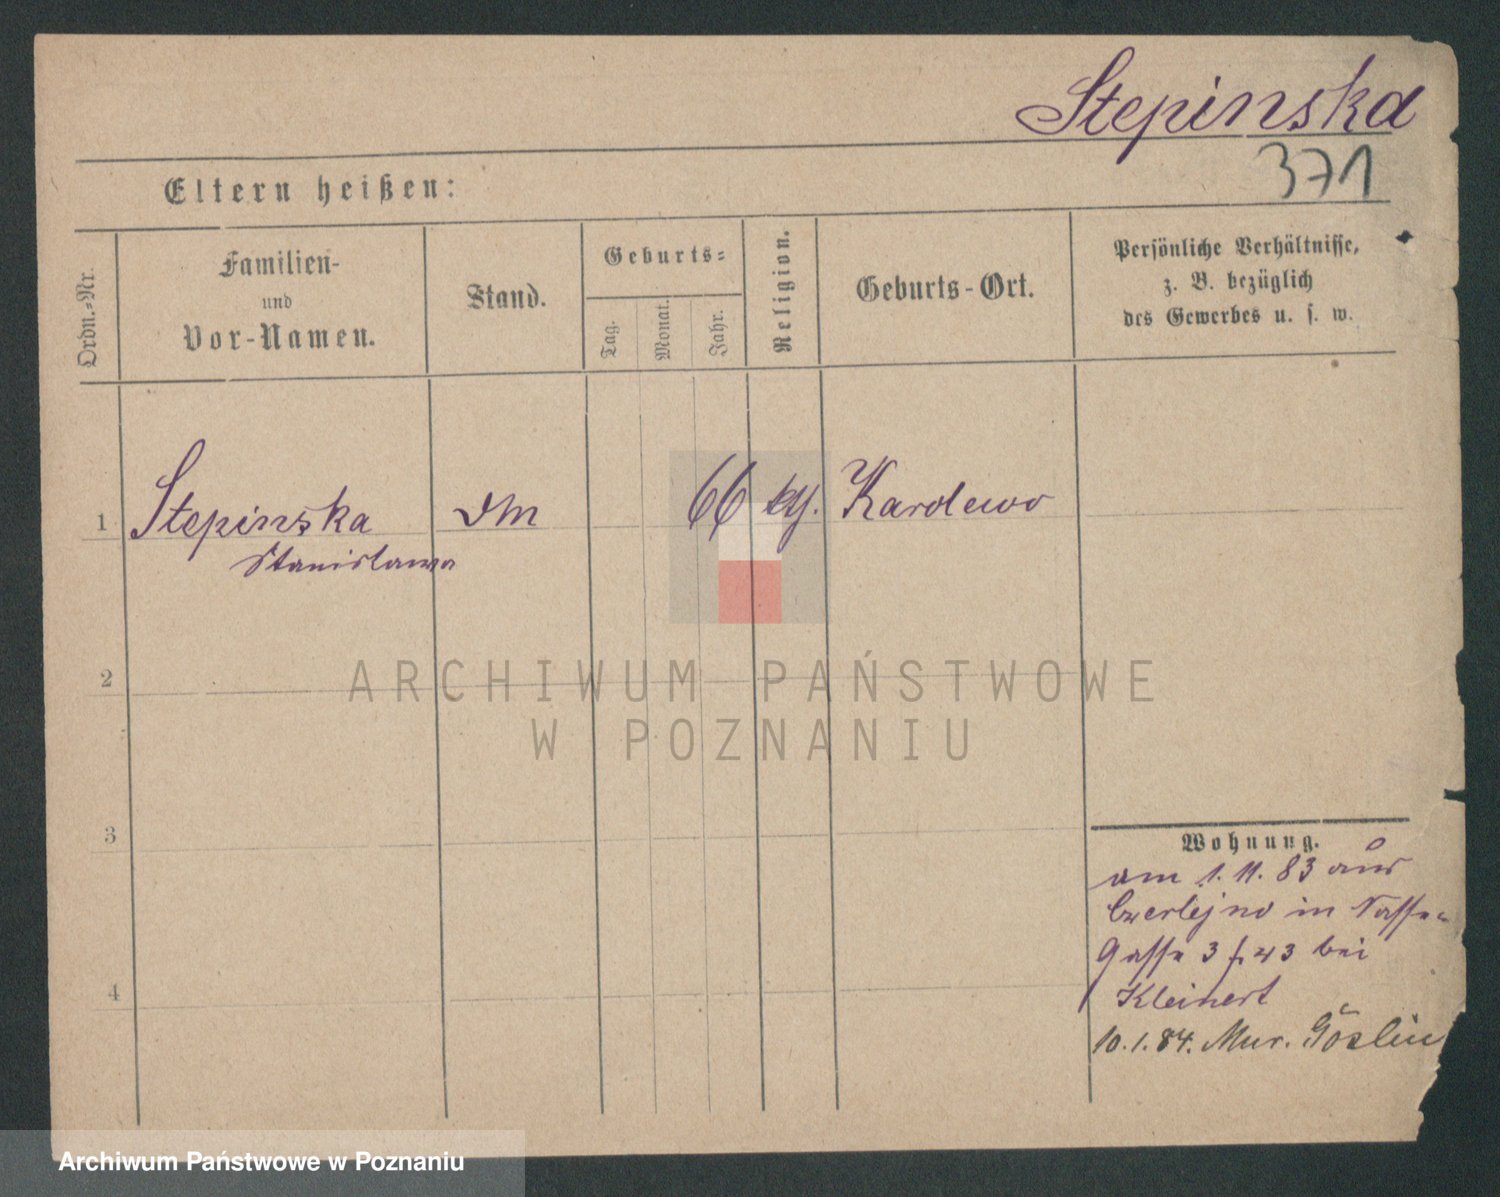 Stepinska
371
Eltern heißen:
Ordn.=Nr.
Familien-
und
Vor-Namen.
Stand.
Geburts=
Tag.
Monat.
Jahr.
Religion.
Geburts-Ort.
Persönliche Verhältnisse,
z. B. bezüglich
des Gewerbes u. s. w.
1 Stepinska 66 Karolewo
Stanislawa
2
3
4
Wohnung.
am 1. 11. 83 aus
Czerlejno in Nasse-
Gasse 3 bei
Kleinert
10. 1. 84. Mur. Goslin
ARCHIWUM PAŃSTWOWE
W POZNANIU
Archiwum Państwowe w Poznaniu